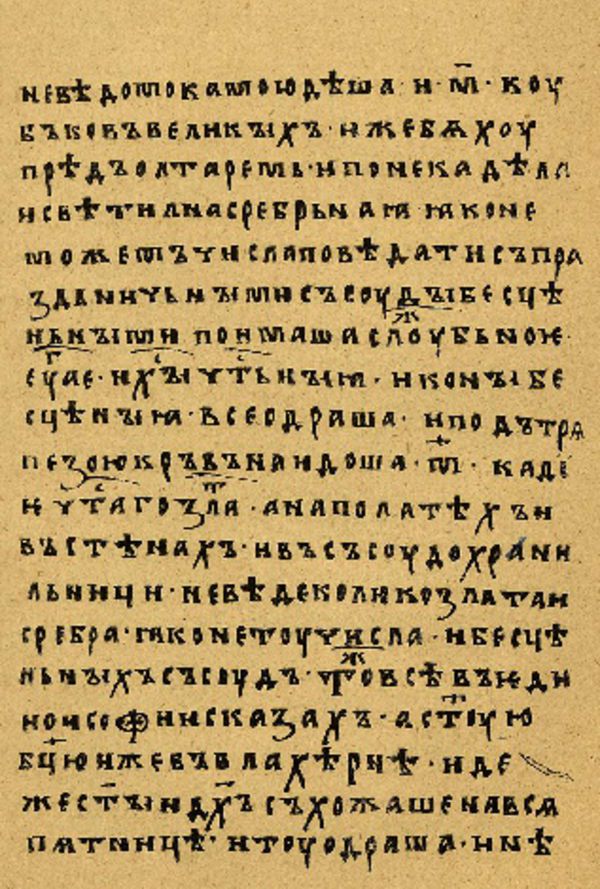 невѣдомокамоюдѣша · и · м҃ · коу
бъковъвеликыхъ · ижебѧхоу
прѣдъолтаремь · ипоникадѣла
исвѣтилнасребрьнаꙗ · ꙗконе
можемъчислаповѣдатисъпра
здьничьнымисъсоудыбесцѣ
ньными поимашаслоужьбьное
еуае · ихрⷭ҇тычтьныꙗ · иконыбе
сцѣныꙗ · всеодраша · иподътрѧ
пезоюкръвънаидоша · м҃ · кадеи
чⷭ҇тагозⷧ҇та · анаполатѣхъи
въстѣнахъ · ивъсъсоудохрани
льници · невѣдеколикозлатаи
сребра · ꙗконетоучисла · ибесцѣ
ньныхъсъсоудъ · товсѣвъѥди
ноисофиисказахъ · астоую
бцюижевъвлахѣрнѣ · иде
жест҃ыидх҃ъсъхожашенавсѧ
пѧтницѣ · итоуодраша · инѣ